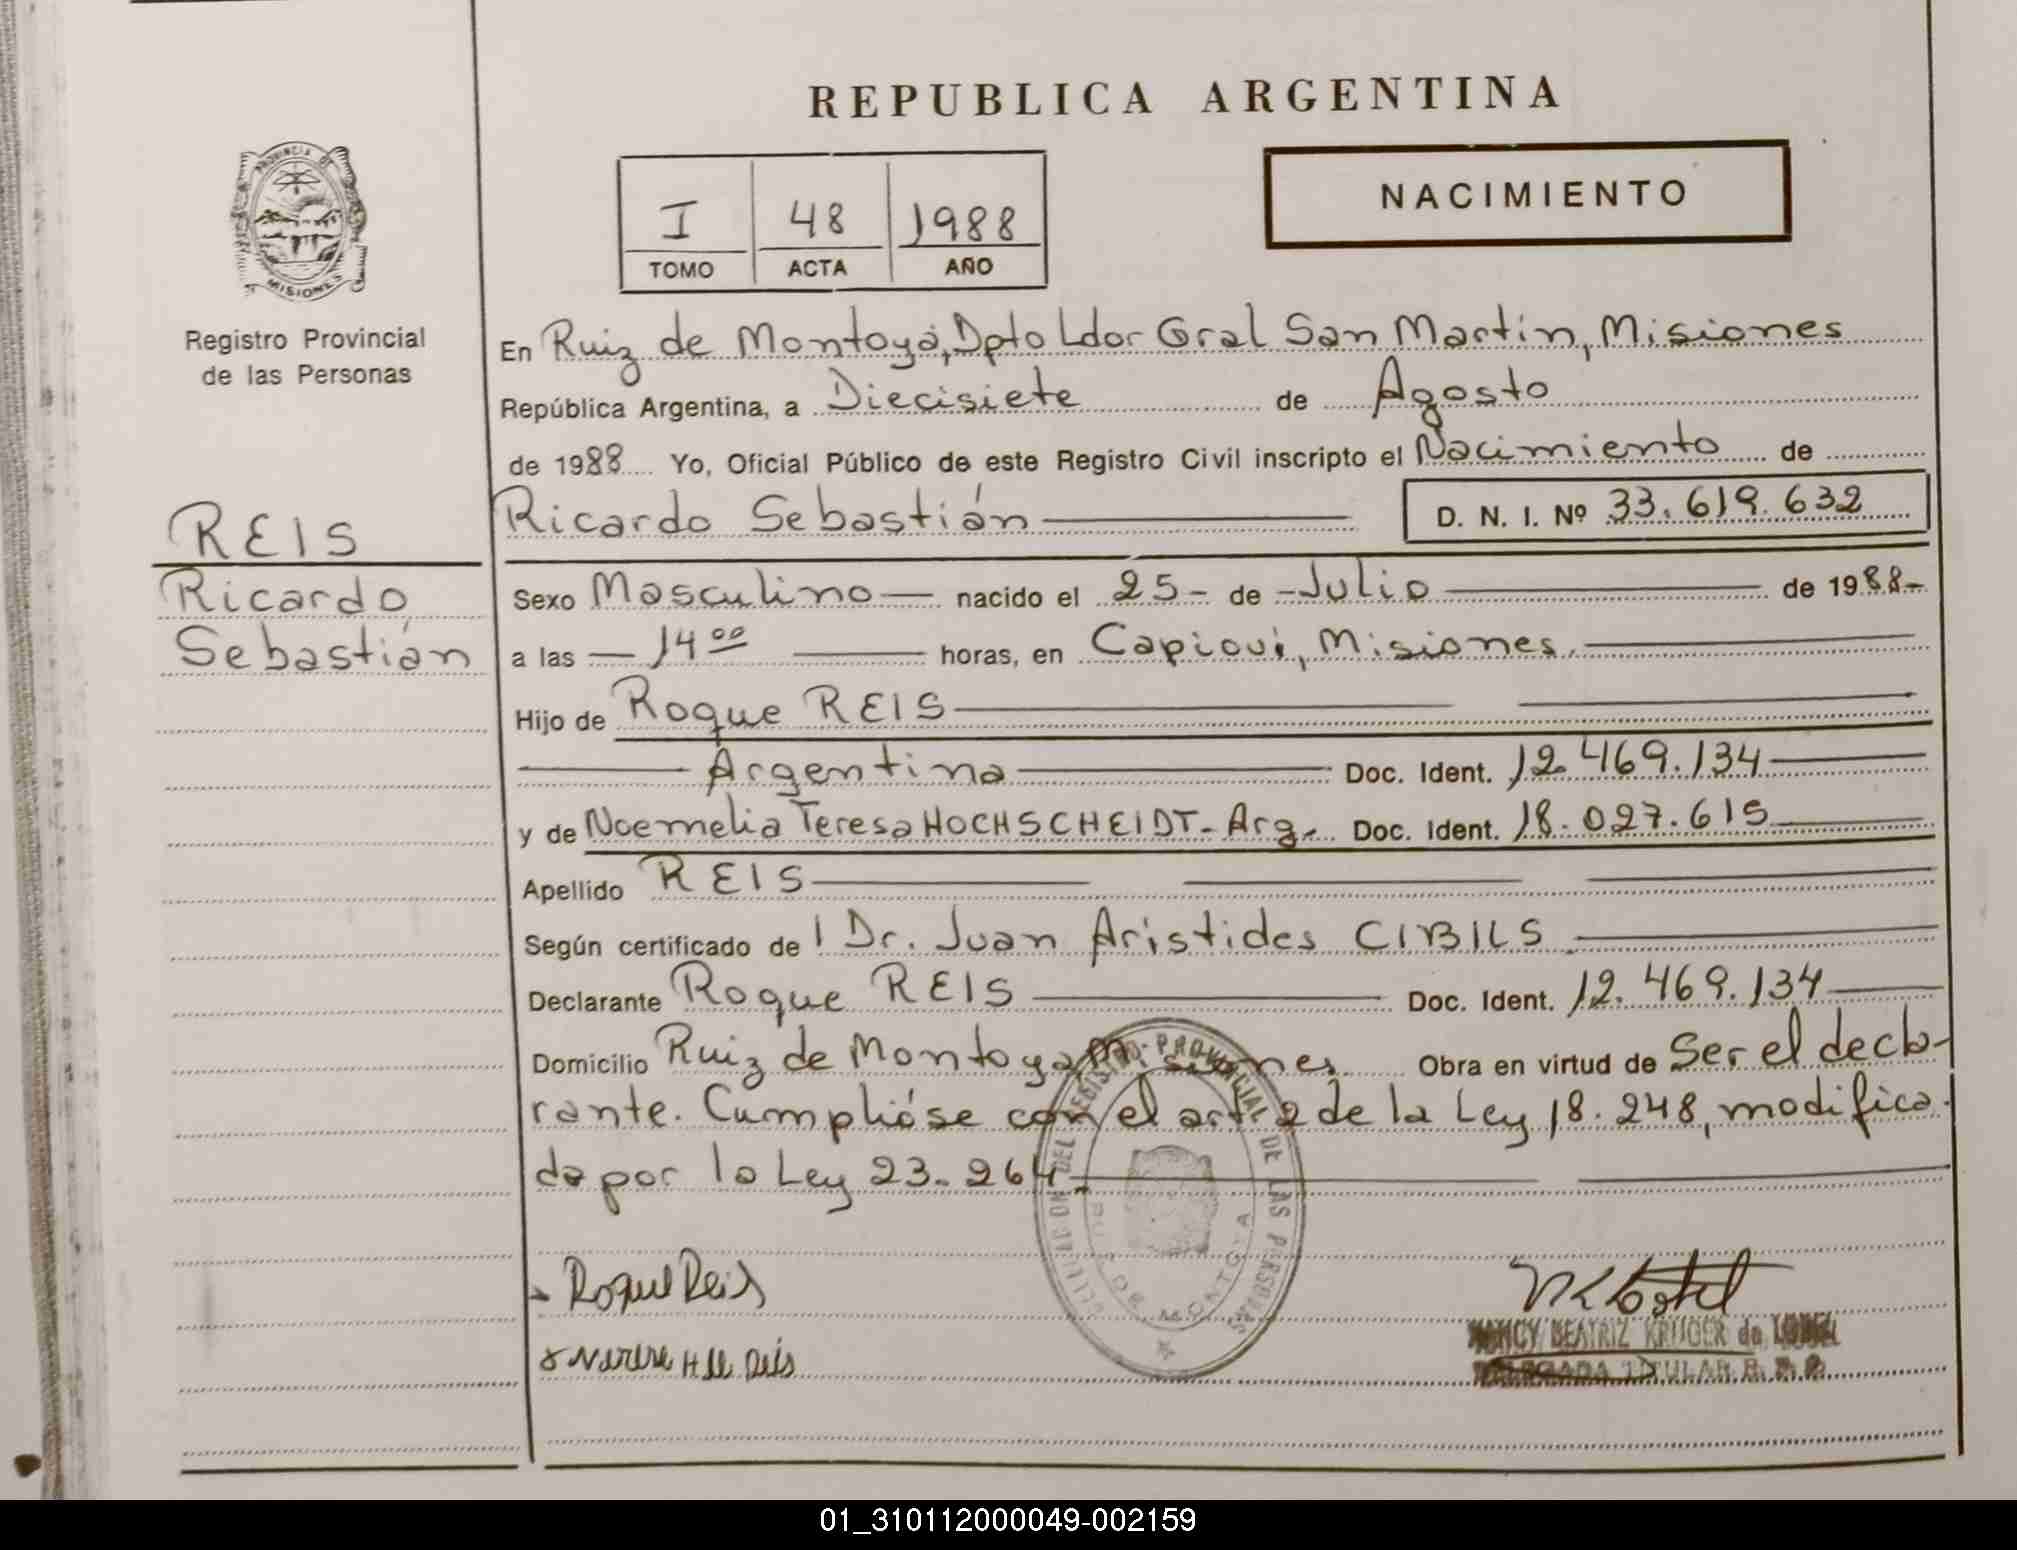 REPUBLICA ARGENTINA
NACIMIENTO
I 48 1988
TOMO ACTA AÑO
PROVINCIA DE
MISIONES
Registro Provincial
de las Personas
En Ruiz de Montoya, Dpto Ldor Gral San Martín, Misiones
República Argentina, a Diecisiete de Agosto
de 1988 Yo, Oficial Público de este Registro Civil inscripto el Nacimiento de
Ricardo Sebastián D. N. I. Nº 33.619.632
REIS
Ricardo
Sebastián
Sexo Masculino nacido el 25 - de - Julio de 1988-
a las 14 00 horas, en Capioví, Misiones.
Hijo de Roque REIS
Argentina Doc. Ident. 12.469.134
y de Noemelia Teresa HOCHSCHEIDT - Arg. Doc. Ident. 18.027.615
Apellido REIS
Según certificado de l Dr. Juan Arístides CIBILS
Declarante Roque REIS Doc. Ident. 12.469.134
Domicilio Ruiz de Montoya, Misiones. Obra en virtud de Ser el decla-
rante. Cumplióse con el art. 2 de la Ley 18.248, modifica-
da por la Ley 23.264.
PROVINCIAL DE LAS PERSONAS
MONTOYA
Roque Reis
H de Reis
NANCY BEATRIZ KRUGER de
DELEGADA TITULAR R. P. P.
01_310112000049-002159